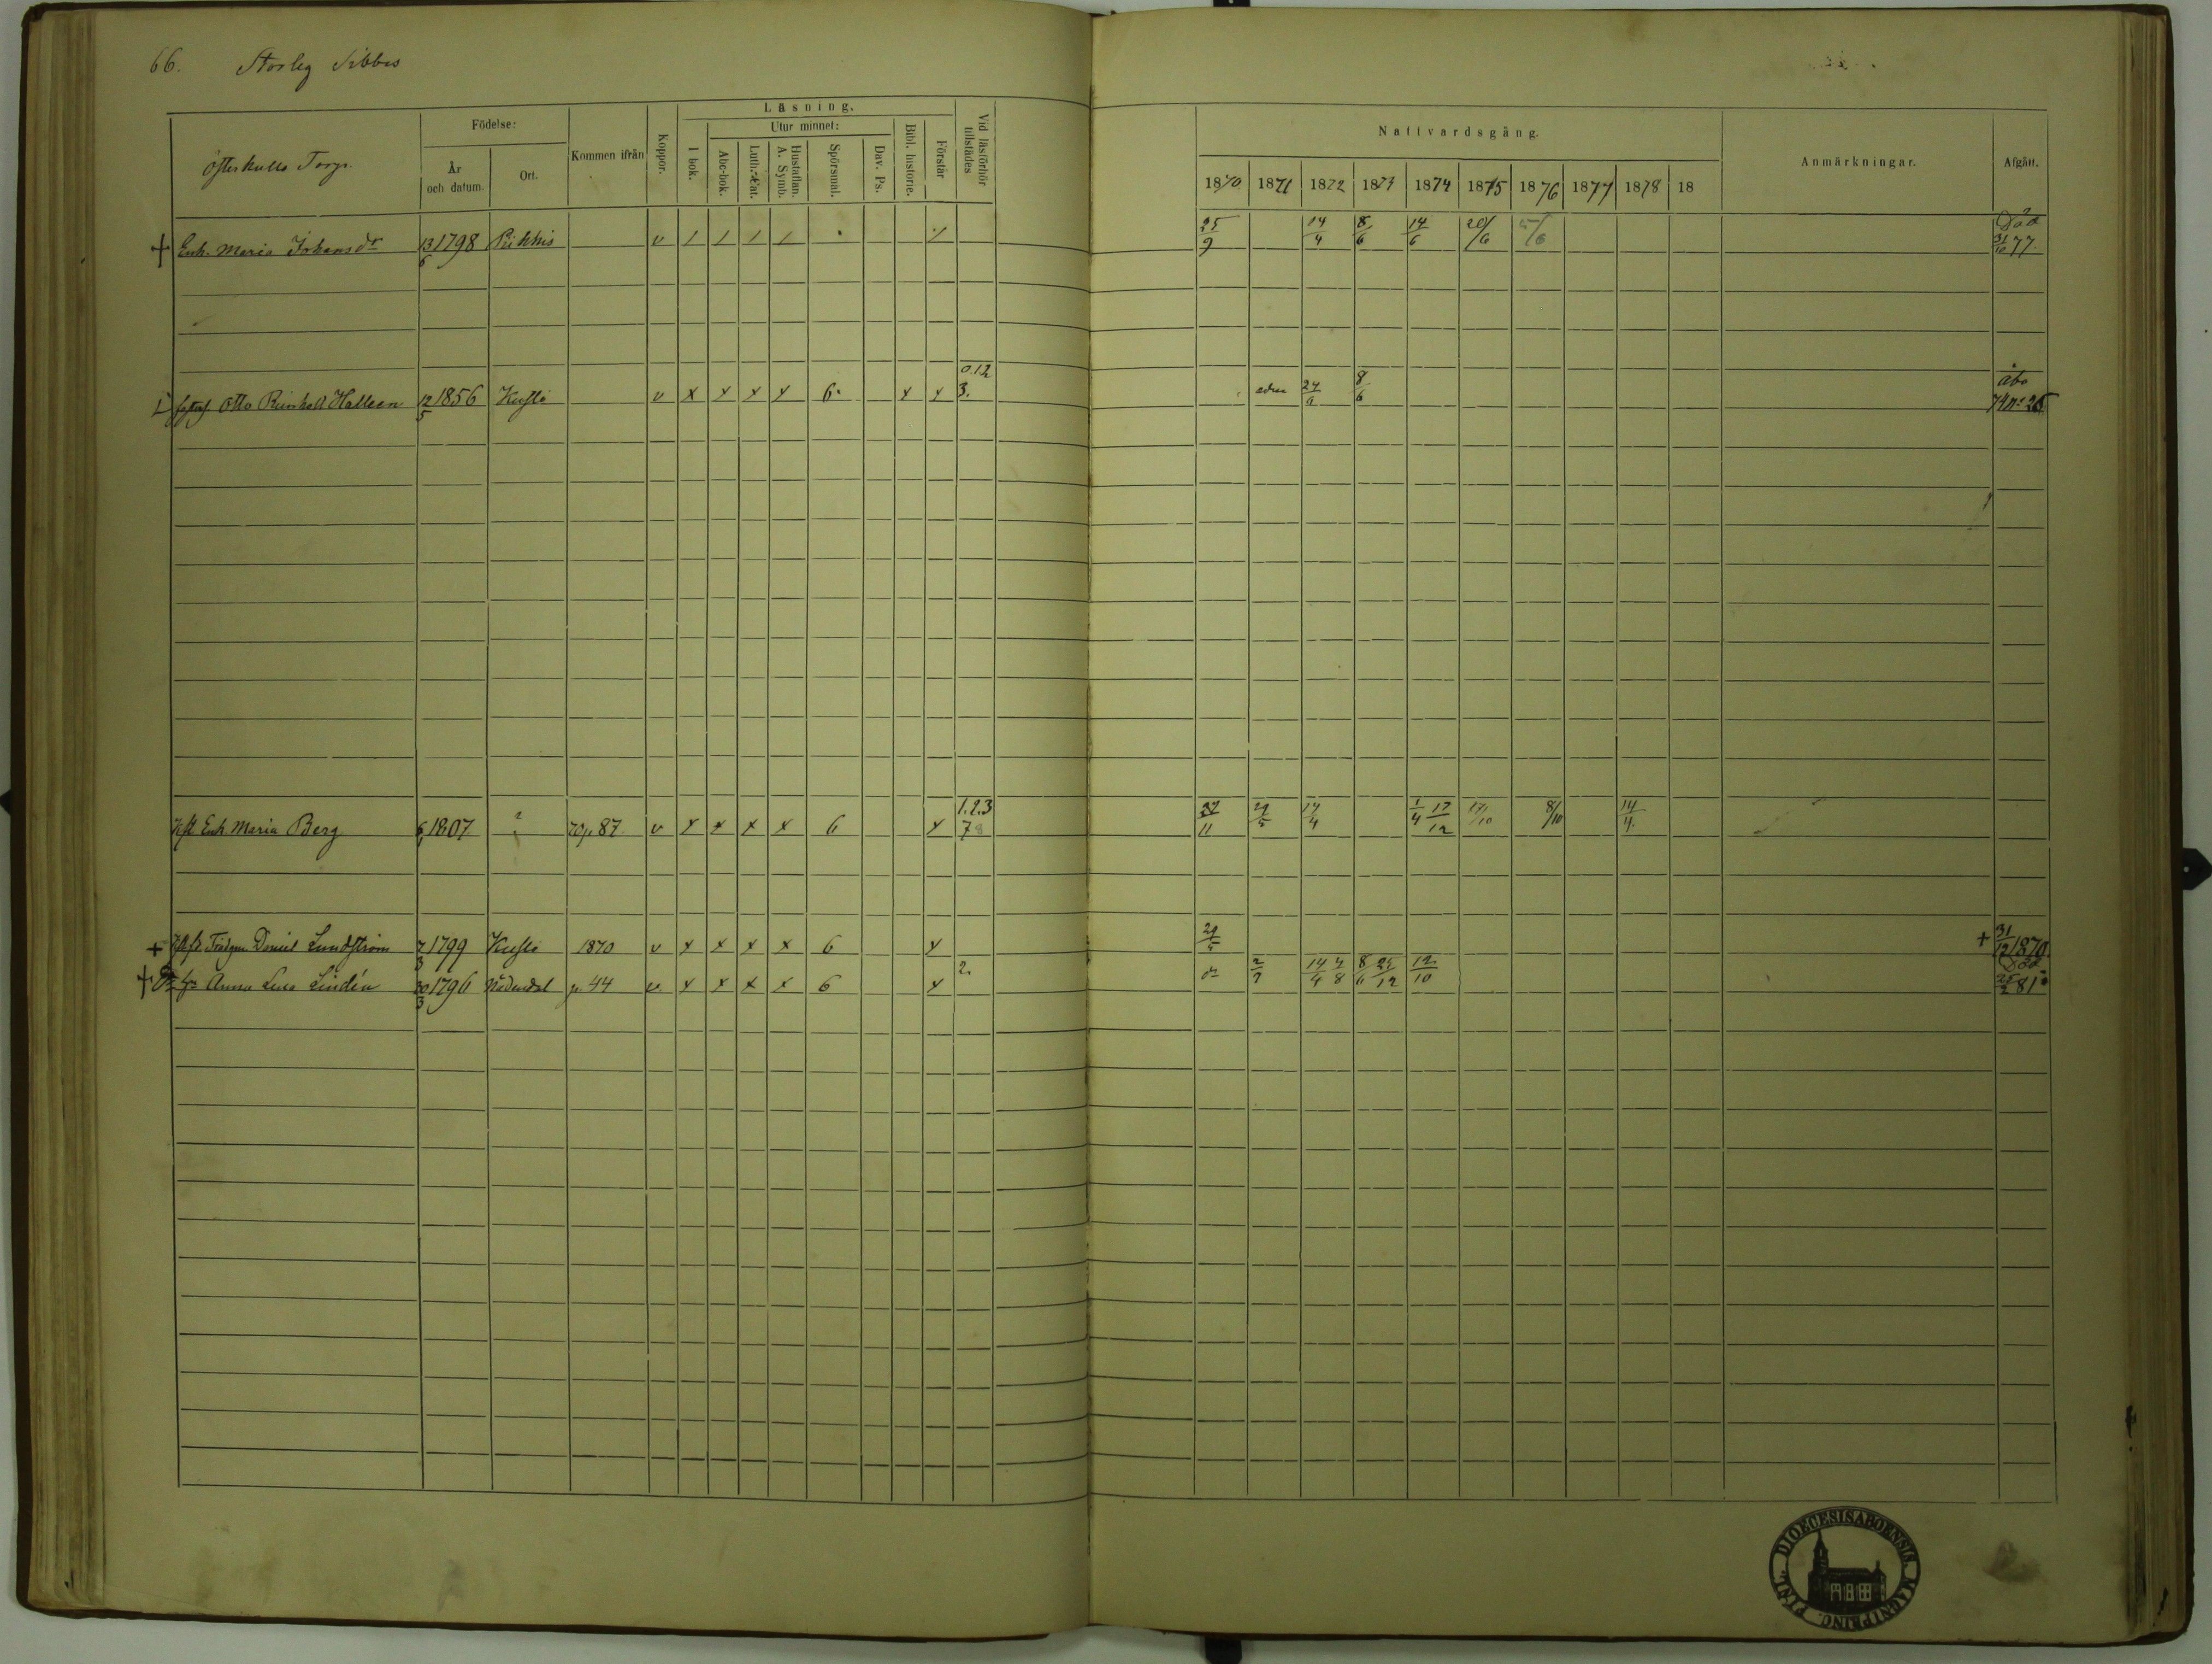 66. Storby Sibbes
Österkulla Torp.
Födelse:
År och datum.
Ort.
Kommen ifrån
Koppor.
Läsning.
I bok.
Utur minnet:
Abc-bok.
Luth. Cat.
Hustaflan. A. Symb.
Spörsmal.
Dav. Ps.
Bibl. historie.
Förstår
Vid läsförhör tillstädes
Nattvardsgång.
1870 1871 1872 1873 1874 1875 1876 1877 1878 18
Anmärkningar.
Afgått.
+ Enk. Maria Johansdr 13/6 1798 Piikkis v / / / / / 25/9 14/4 8/6 14/6 20/6 5/6 Död 31/10 77.
Otto Reinhold Halleen 12/5 1856 Kustö v x x x x 6. x x 0.12 3. 24/6 8/6 Åbo 74 No 25
Enk. Maria Berg 6 1807 ? p. 87 v x x x x 6 x 1.2.3 78 11 14/4 1/4 17/12 17/10 8/10 14/4
+ Daniel Lundström 7/3 1799 Kustö 1870 v x x x x 6 x 29/5 + 31/12 1870
+ Anna Lena Lindén 20/3 1796 Nådendal p. 44 v x x x x 6 x 2. 2/7 14/4 4/8 8/6 25/12 12/10 Död 25/2 81
DIOECESIS ABOENSIS. MAGNI PRINC. FINL.